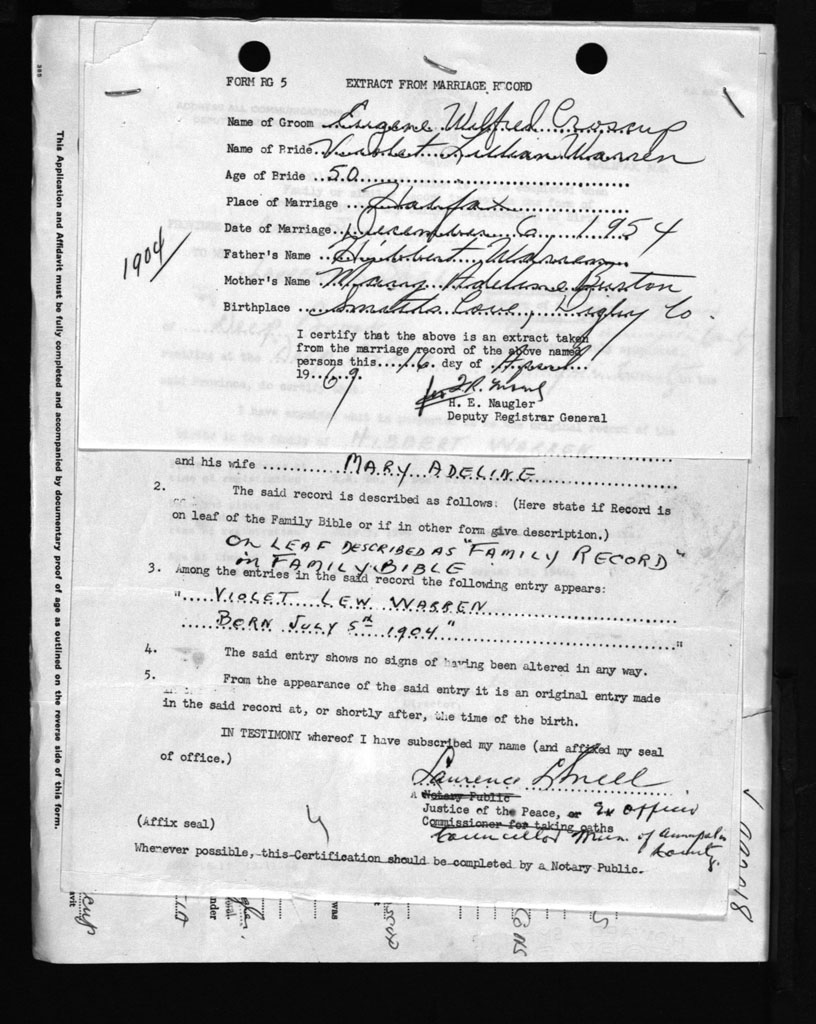 FORM RG 5 EXTRACT FROM MARRIAGE RECORD
Name of Groom Eugene Wilfred Croscup
Name of Bride Violet Lillian Warren
Age of Bride 50
Place of Marriage Halifax
Date of Marriage December 6 1954
Father's Name Hibbert Warren
Mother's Name Mary Adeline Burton
Birthplace Smiths Cove, Digby Co.
1904
I certify that the above is an extract taken
from the marriage record of the above named
persons this 16 day of April
1969.
for
H. E. Naugler
Deputy Registrar General
HIBBERT WARREN
and his wife MARY ADELINE
2. The said record is described as follows: (Here state if Record is
on leaf of the Family Bible or if in other form give description.)
ON LEAF DESCRIBED AS "FAMILY RECORD"
in FAMILY BIBLE
3. Among the entries in the said record the following entry appears:
"VIOLET LEW WARREN
BORN JULY 5th 1904" "
4. The said entry shows no signs of having been altered in any way.
5. From the appearance of the said entry it is an original entry made
in the said record at, or shortly after, the time of the birth.
IN TESTIMONY whereof I have subscribed my name (and affixed my seal
of office.)
Laurence Snell
A Notary Public
Justice of the Peace, or Ex Officio
Commissioner for taking oaths
Councillor Mun. of Annapolis
County.
(Affix seal)
Whenever possible, this Certification should be completed by a Notary Public.
This Application and Affidavit must be fully completed and accompanied by documentary proof of age as outlined on the reverse side of this form.
cup
nder
was